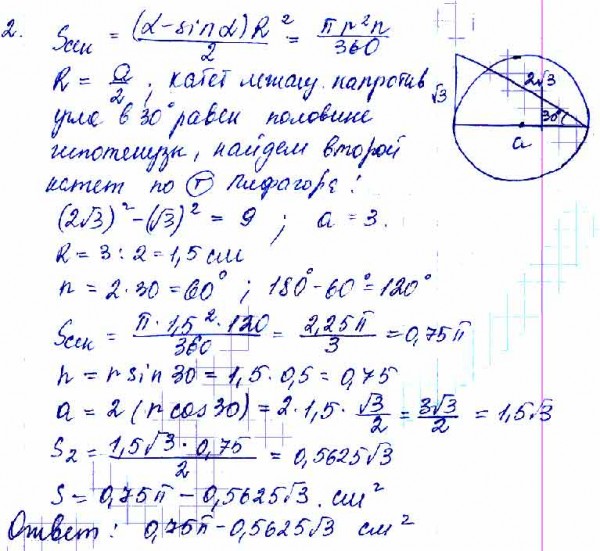 2. Sсек = (α-sinα)R²/2 = πr²n/360
R = a/2 ; катет лежащ. напротив
угла в 30° равен половине
гипотенузы, найдем второй
катет по т Пифагора:
(2√3)² - (√3)² = 9 ; a = 3.
R = 3 : 2 = 1,5 см
n = 2·30 = 60° ; 180° - 60° = 120°
Sсек = π·1,5²·120/360 = 2,25π/3 = 0,75π
h = r sin 30 = 1,5·0,5 = 0,75
a = 2(r cos 30) = 2·1,5·√3/2 = 3√3/2 = 1,5√3
S2 = 1,5√3·0,75/2 = 0,5625√3
S = 0,75π - 0,5625√3 . см²
Ответ: 0,75π - 0,5625√3 см²
2√3
√3
30°
a